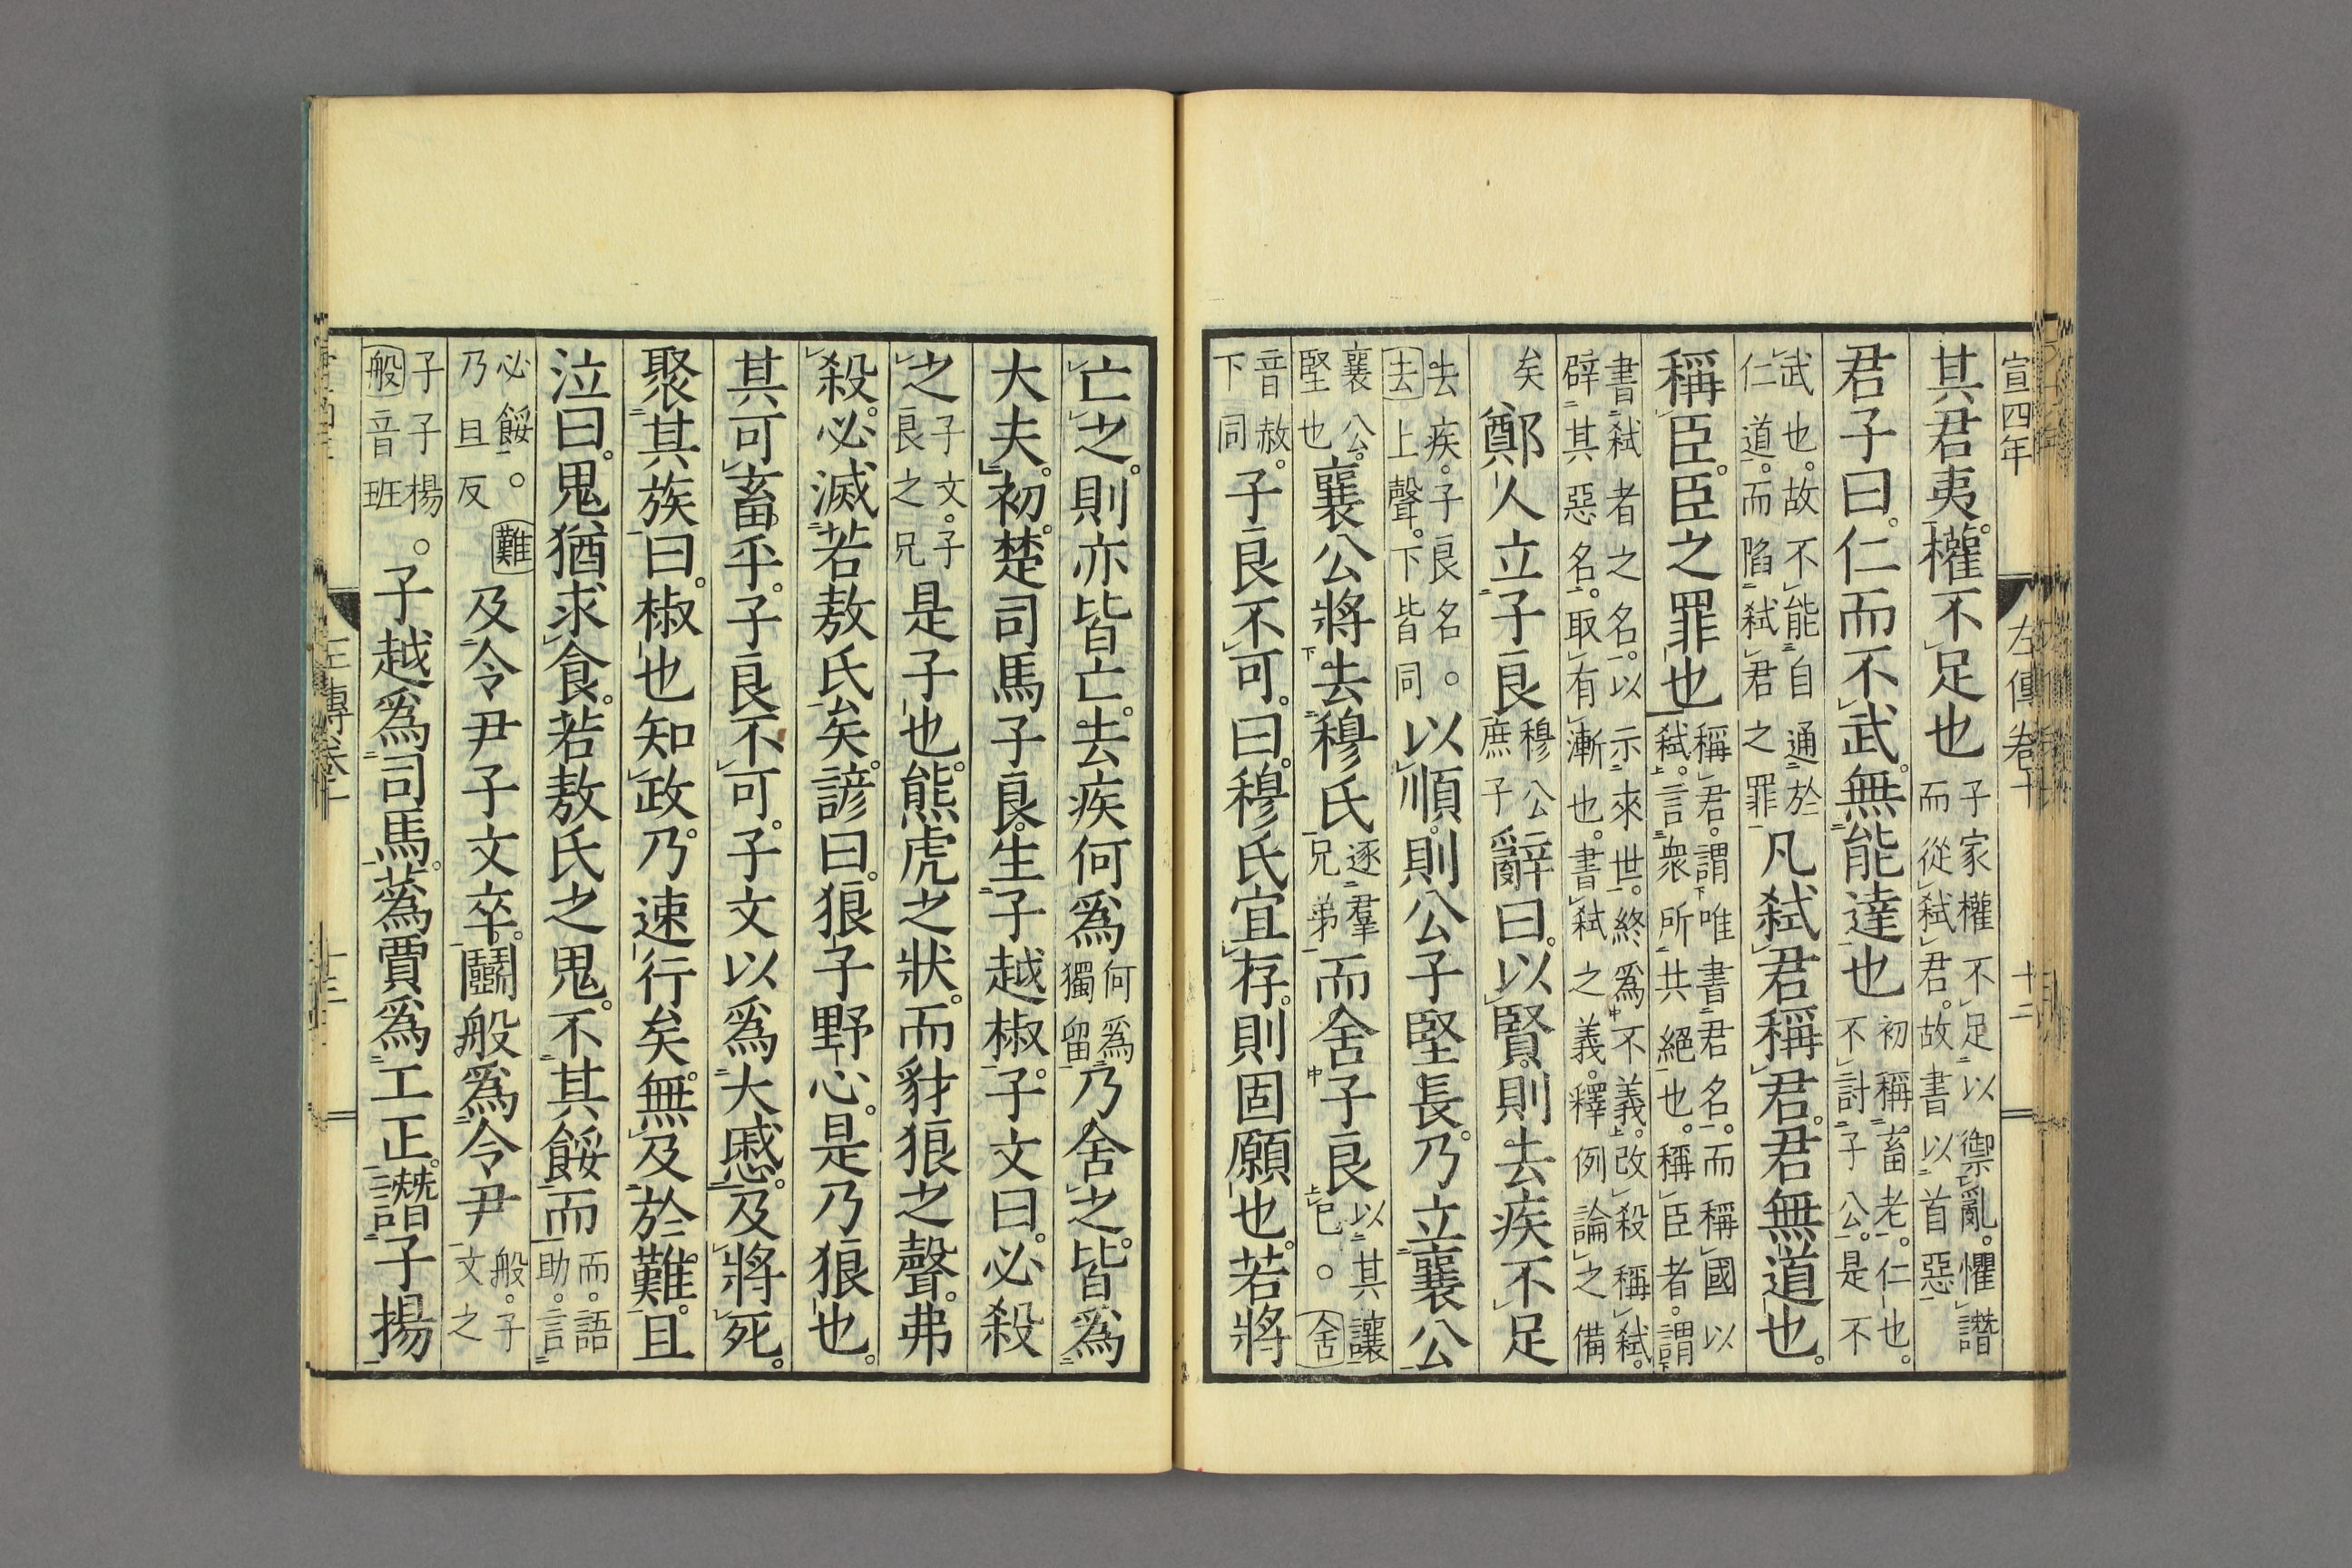 宣四年　左傳卷十　十二
其君夷。權不足也子家權不足以禦亂。懼譖而從弑君。故書以首惡
君子曰。仁而不武。無能達也初稱畜老。仁也。不討子公。是不
武也。故不能自通於仁道。而陷弑君之罪凡弑君稱君。君無道也。
稱臣。臣之罪也稱君。謂唯書君名。而稱國以弑。言衆所共絕也。稱臣者。謂
書弑者之名。以示來世。終爲不義。改殺稱弑。辟其惡名。取有漸也。書弑之義。釋例論之備
矣鄭人立子良穆公庶子辭曰。以賢。則去疾不足
去疾。子良名。去上聲。下皆同以順。則公子堅長。乃立襄公
襄公。堅也襄公將去穆氏逐羣兄弟而舍子良以其讓已。舍
音赦。下同子良不可。曰。穆氏宜存。則固願也。若將
亡之。則亦皆亡。去疾何爲何爲獨留乃舍之。皆爲
大夫。初。楚司馬子良。生子越椒。子文曰。必殺
之子文。子良之兄是子也。熊虎之狀。而豺狼之聲。弗
殺。必滅若敖氏矣。諺曰。狼子野心。是乃狼也。
其可畜乎。子良不可。子文以爲大慼。及將死。
聚其族曰。椒也知政。乃速行矣。無及於難。且
泣曰。鬼猶求食。若敖氏之鬼。不其餒而而。語助。言
必餒。。難乃旦反及令尹子文卒。鬭般爲令尹般。子文之
子子揚。般音班子越爲司馬。蒍賈爲工正。譖子揚